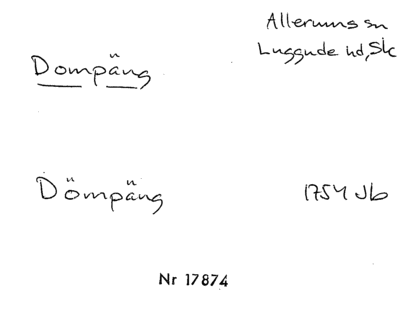 Allerums sn
Luggude hd, Sk
Dompäng
Dömpäng
1754 Jb
Nr 17874